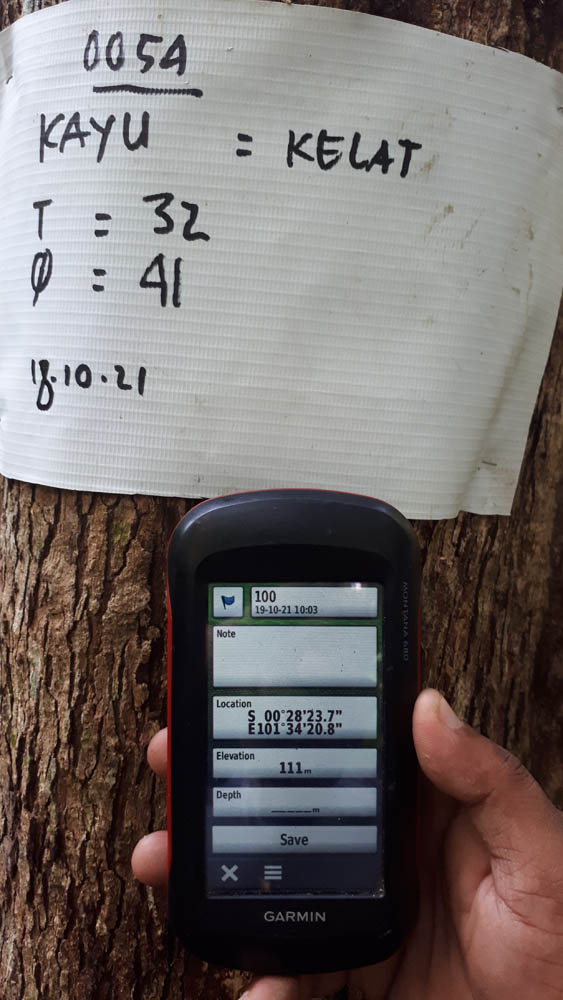 005A
KAYU = KELAT
T = 32
Ø = 41
18.10.21
100
19-10-21 10:03
Note
Location
S 00°28'23.7"
E101°34'20.8"
Elevation
111m
Depth
_____m
Save
GARMIN
MONTANA 680